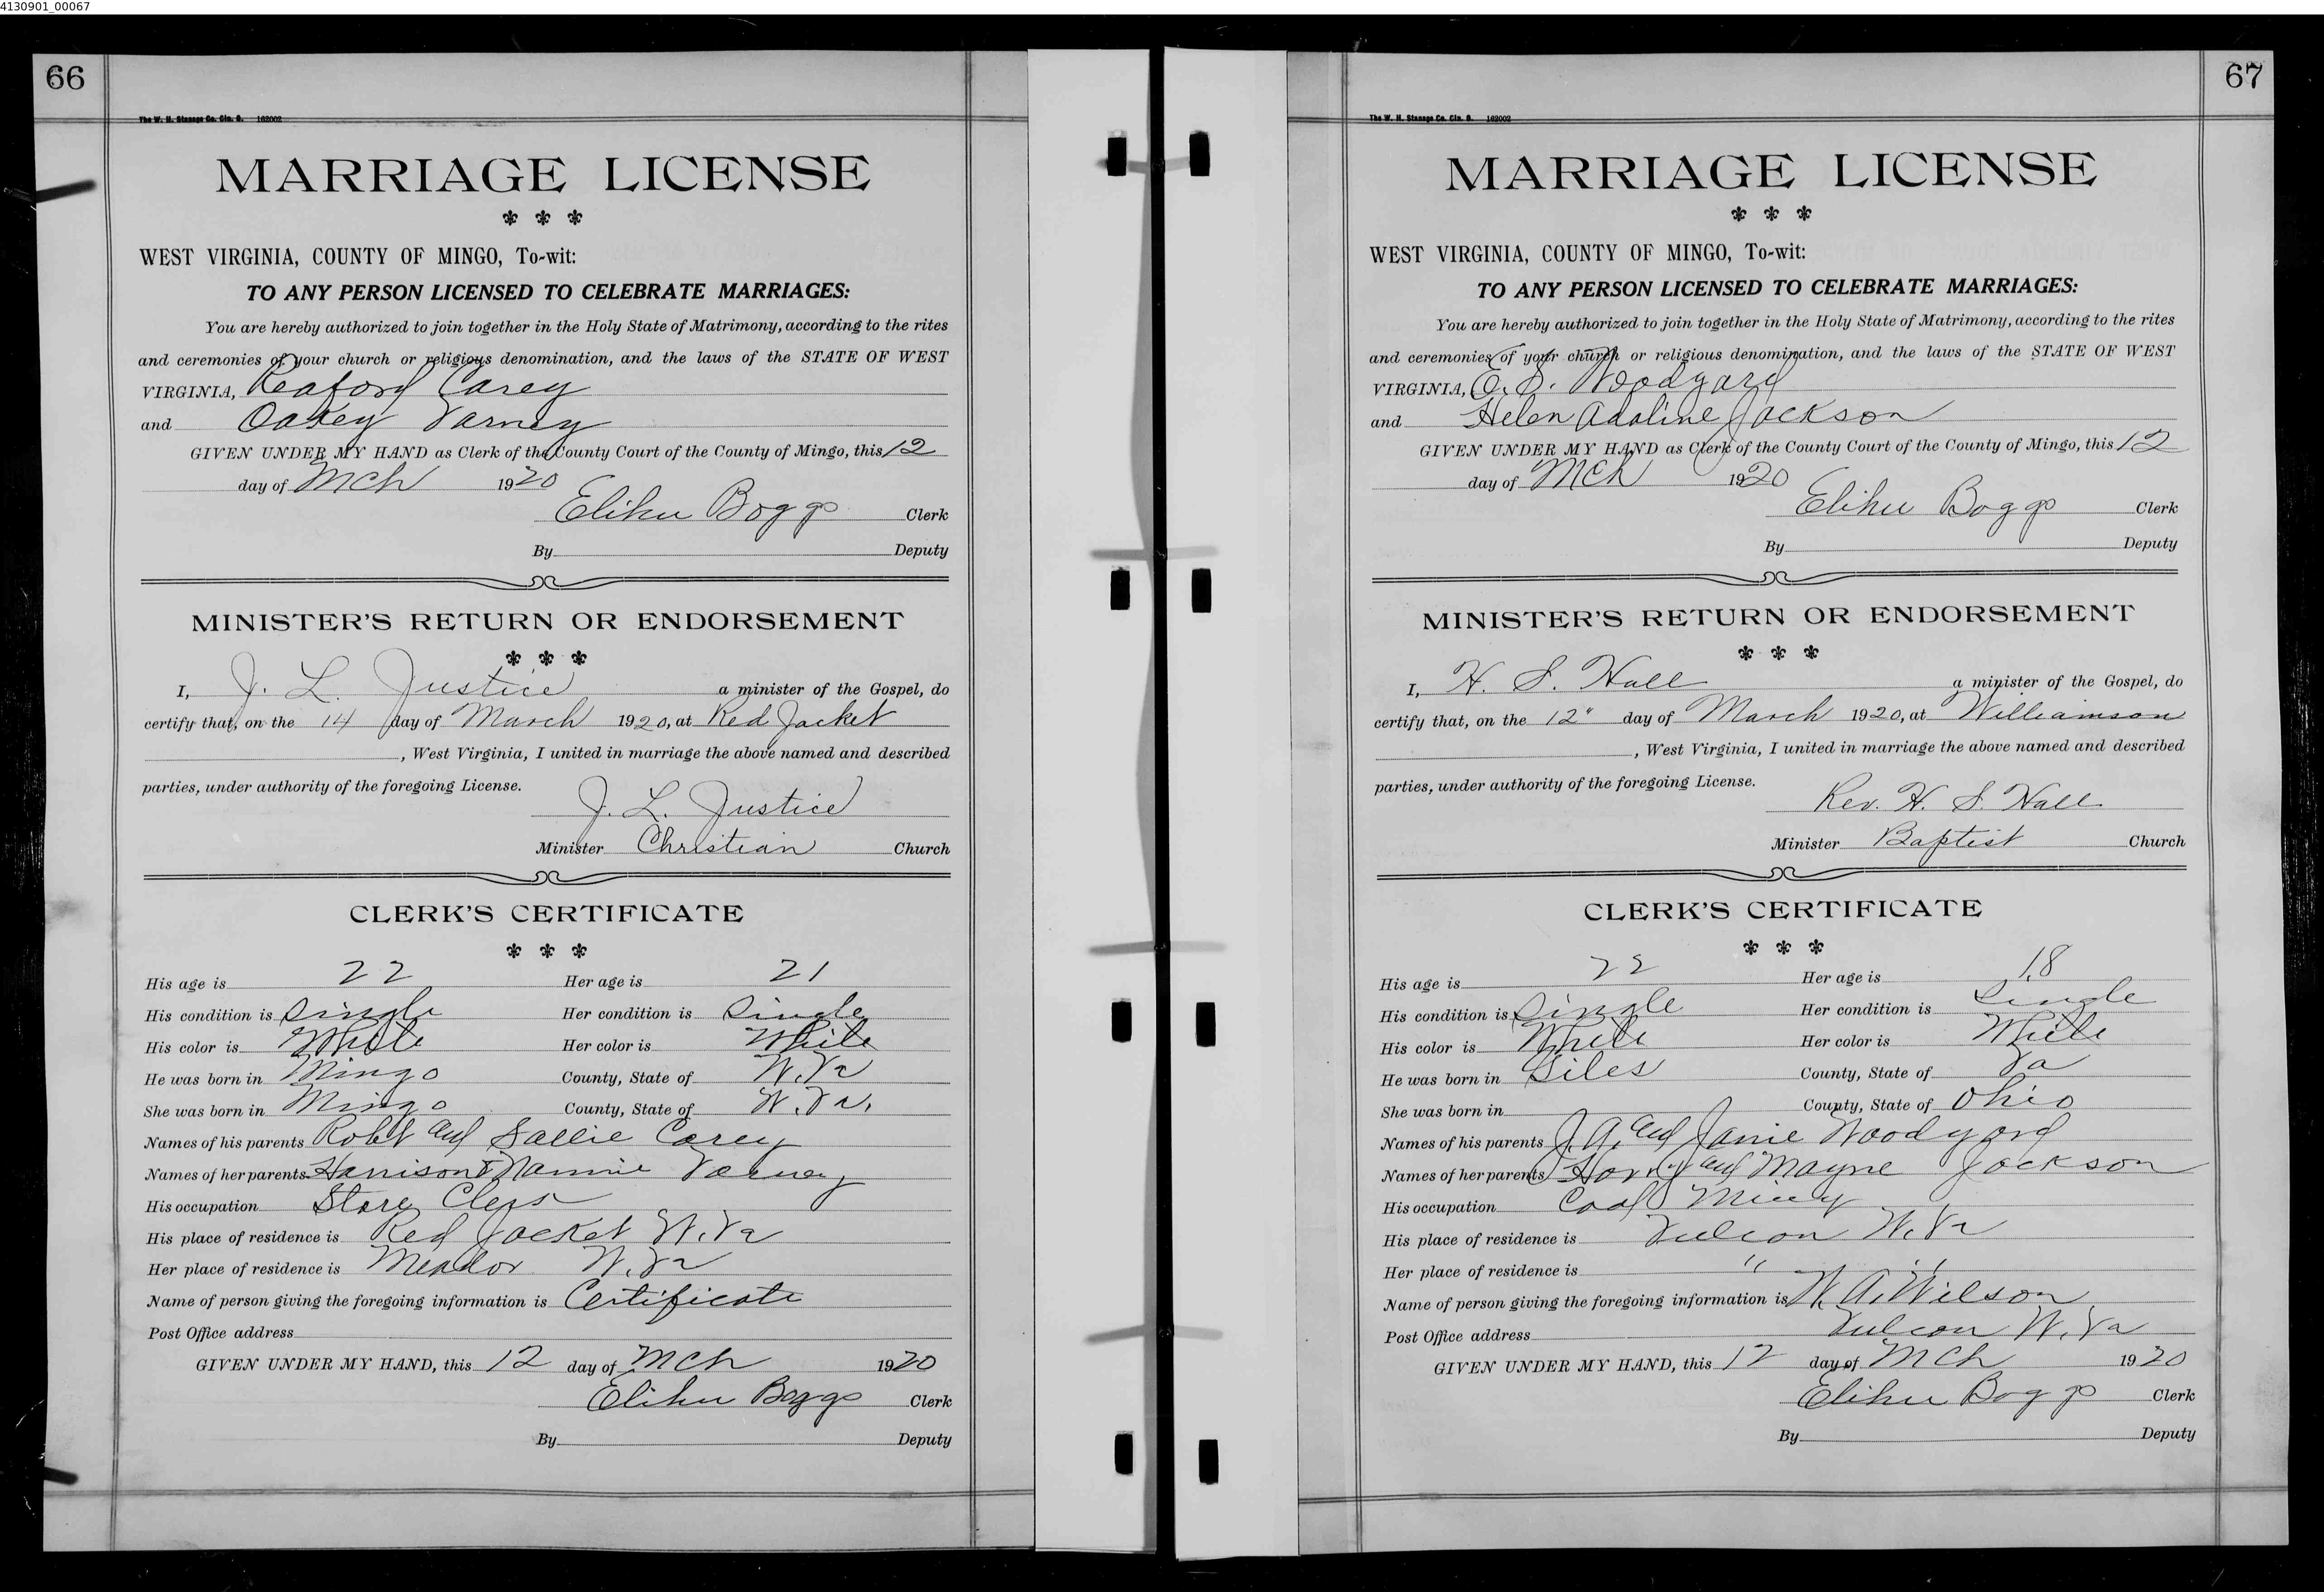 4130901_00067
66
The W. H. Stanage Co. Cin. O. 162002
MARRIAGE LICENSE
WEST VIRGINIA, COUNTY OF MINGO, To-wit:
TO ANY PERSON LICENSED TO CELEBRATE MARRIAGES:
You are hereby authorized to join together in the Holy State of Matrimony, according to the rites
and ceremonies of your church or religious denomination, and the laws of the STATE OF WEST
VIRGINIA, Reaford Carey
and Oakey Varney
GIVEN UNDER MY HAND as Clerk of the County Court of the County of Mingo, this 12
day of Mch 1920
Elihu Boggs Clerk
By Deputy
MINISTER'S RETURN OR ENDORSEMENT
I, J. L. Justice a minister of the Gospel, do
certify that, on the 14 day of March 1920, at Red Jacket
, West Virginia, I united in marriage the above named and described
parties, under authority of the foregoing License.
J. L. Justice
Minister Christian Church
CLERK'S CERTIFICATE
His age is 22 Her age is 21
His condition is Single Her condition is Single
His color is White Her color is White
He was born in Mingo County, State of W. Va
She was born in Mingo County, State of W. Va.
Names of his parents Robt and Sallie Carey
Names of her parents Harrison & Nannie Varney
His occupation Store Clerk
His place of residence is Red Jacket W. Va
Her place of residence is Meador W. Va
Name of person giving the foregoing information is Certificate
Post Office address
GIVEN UNDER MY HAND, this 12 day of Mch 1920
Elihu Boggs Clerk
By Deputy
67
The W. H. Stanage Co. Cin. O. 162002
MARRIAGE LICENSE
WEST VIRGINIA, COUNTY OF MINGO, To-wit:
TO ANY PERSON LICENSED TO CELEBRATE MARRIAGES:
You are hereby authorized to join together in the Holy State of Matrimony, according to the rites
and ceremonies of your church or religious denomination, and the laws of the STATE OF WEST
VIRGINIA, Woodyard
and Helen Adaline Jackson
GIVEN UNDER MY HAND as Clerk of the County Court of the County of Mingo, this 12
day of Mch 1920
Elihu Boggs Clerk
By Deputy
MINISTER'S RETURN OR ENDORSEMENT
I, H. S. Hall a minister of the Gospel, do
certify that, on the 12" day of March 1920, at Williamson
, West Virginia, I united in marriage the above named and described
parties, under authority of the foregoing License.
Rev. H. S. Hall
Minister Baptist Church
CLERK'S CERTIFICATE
His age is 22 Her age is 18
His condition is Single Her condition is Single
His color is White Her color is White
He was born in Giles County, State of Va
She was born in County, State of Ohio
Names of his parents J. A. and Janie Woodyard
Names of her parents and Mayne Jackson
His occupation Coal
His place of residence is Vulcan W. Va
Her place of residence is " "
Name of person giving the foregoing information is W. A. Wilson
Post Office address Vulcan W. Va
GIVEN UNDER MY HAND, this 12 day of Mch 1920
Elihu Boggs Clerk
By Deputy